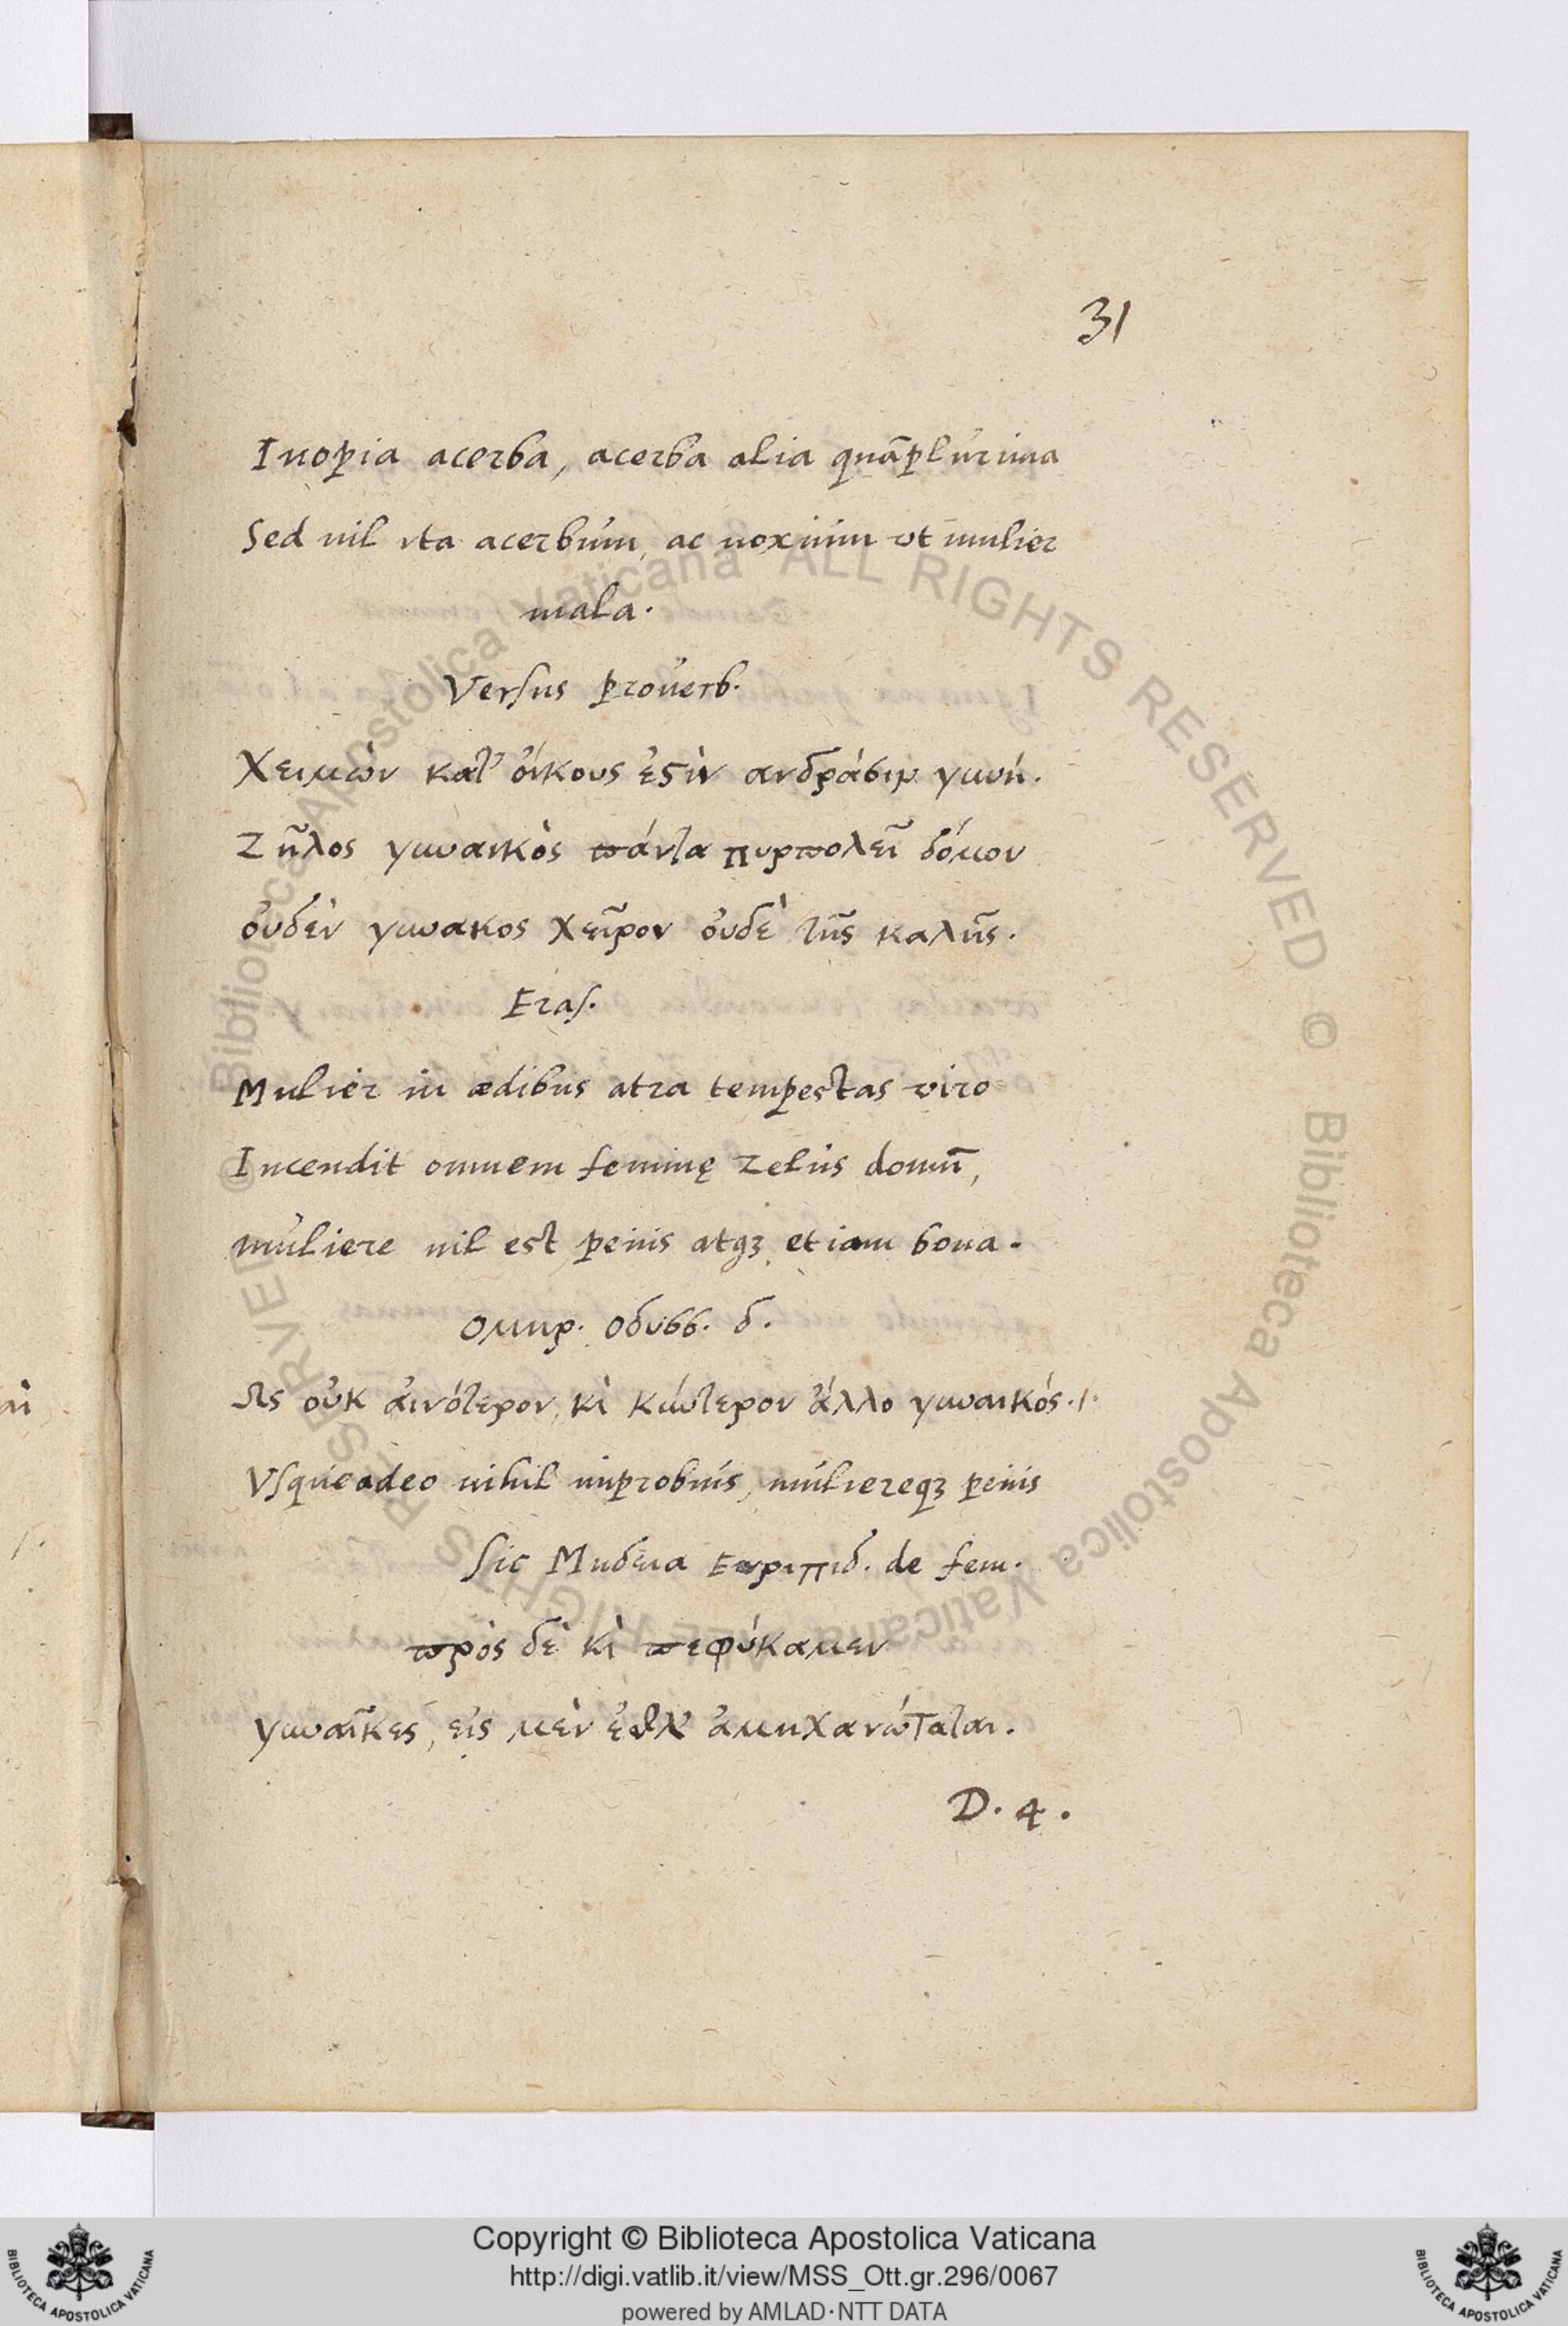 31
Inopia acerba, acerba alia quāplurima
Sed nil ita acerbum, ac noxium vt mulier
mala.
Versus prouerb.
Χειμὼν κατ' ὀίκους ἐϛὶν ανδράσιν γυνή.
Ζῆλος γυναικὸς πάντα πυρπολεῖ δόμον
ὀυδὲν γυνακος χεῖρον ὀυδὲ τῆς καλῆς.
Eras.
Mulier in ædibus atra tempestas viro
Incendit omnem feminę zelus domū,
muliere nil est peius atqꝫ etiam bona.
Ομηρ. Οδυσσ. δ.
Ως οὐκ ἀινότερον, κὶ κύντερον ἄλλο γυναικός.
Vsqueadeo nihil improbius, muliereqꝫ peius
Sic Μηδεια Ευριπιδ. de fem.
πρὸς δὲ κὶ πεφύκαμεν
γυναῖκες, εἰς μὲν ἐθλ' ἀμηχανώταται.
D. 4.
Copyright © Biblioteca Apostolica Vaticana
http://digi.vatlib.it/view/MSS_Ott.gr.296/0067
powered by AMLAD·NTT DATA
BIBLIOTECA APOSTOLICA VATICANA
BIBLIOTECA APOSTOLICA VATICANA
© Biblioteca Apostolica Vaticana ALL RIGHTS RESERVED © Biblioteca Apostolica Vaticana ALL RIGHTS RESERVED